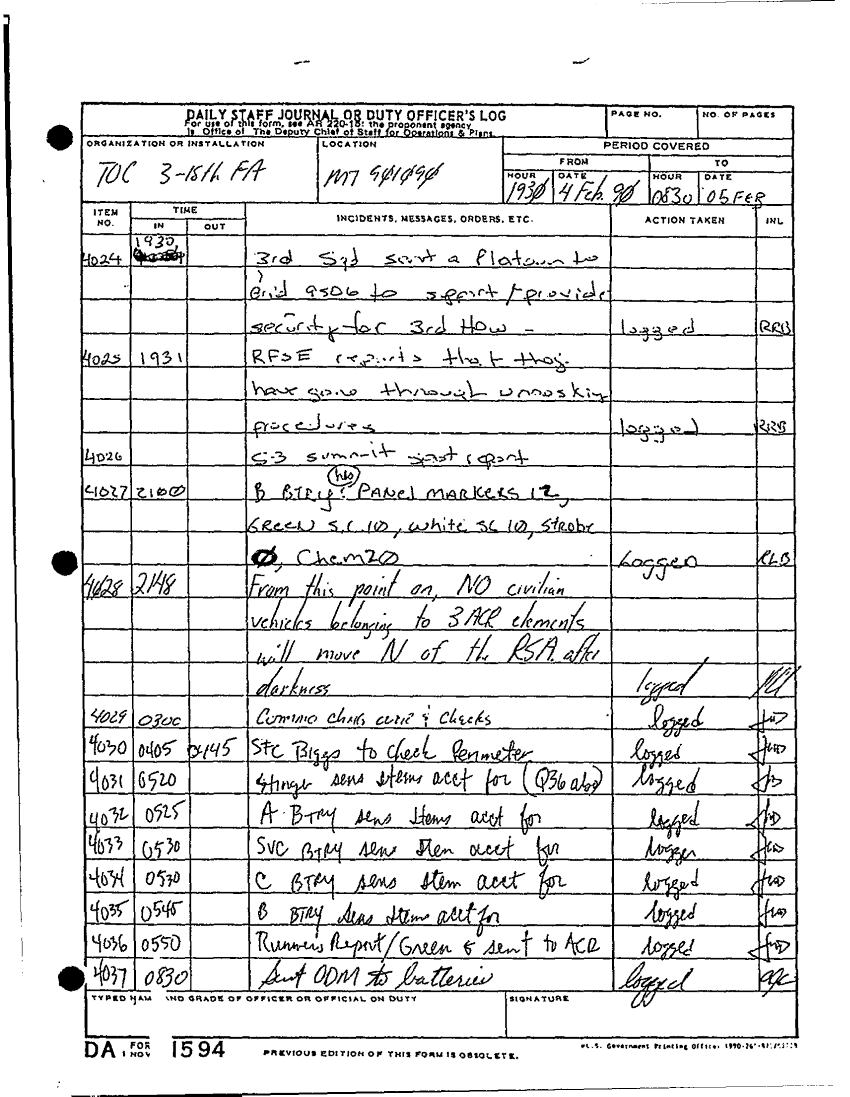 DAILY STAFF JOURNAL OR DUTY OFFICER'S LOG
For use of this form, see AR 220-15; the proponent agency
is Office of The Deputy Chief of Staff for Operations & Plans.
PAGE NO.
NO. OF PAGES
ORGANIZATION OR INSTALLATION
TOC 3-18th FA
LOCATION
MT 901090
PERIOD COVERED
FROM TO
HOUR DATE HOUR DATE
1930 4 Feb. 90 0830 05 FEB
ITEM NO. TIME IN OUT INCIDENTS, MESSAGES, ORDERS, ETC. ACTION TAKEN INL
4024 1930 3rd Sqd sent a Platoon to
Grid 9506 to support/provide
security for 3rd How - logged RRB
4025 1931 RFSE reports that they
have gone through unmasking
procedures logged RRB
4026 S-3 summit spot report
4027 2100 (hrs) B BTRY: PANEL MARKERS 12,
GREEN S.C. 10, White SC 10, Strobe
0, Chem 20 Logged RLB
4028 2148 From this point on, NO civilian
vehicles belonging to 3 ACR elements
will move N of the RSA after
darkness logged
4029 0300 Commo & Checks logged
4030 0405 0445 SFC Biggs to Check Perimeter logged
4031 0520 Stinger sens items acct for (Q36 also) logged
4032 0525 A BTRY sens Items acct for logged
4033 0530 SVC BTRY sens Item acct for logged
4034 0530 C BTRY sens Item acct for logged
4035 0545 B BTRY sens Items acct for logged
4036 0550 Runners Report/Green 6 sent to ACR logged
4037 0830 Sent ODM to batteries logged
TYPED NAM ND GRADE OF OFFICER OR OFFICIAL ON DUTY
SIGNATURE
DA FOR 1 NOV 1594 PREVIOUS EDITION OF THIS FORM IS OBSOLETE.
U.S. Government Printing Office: